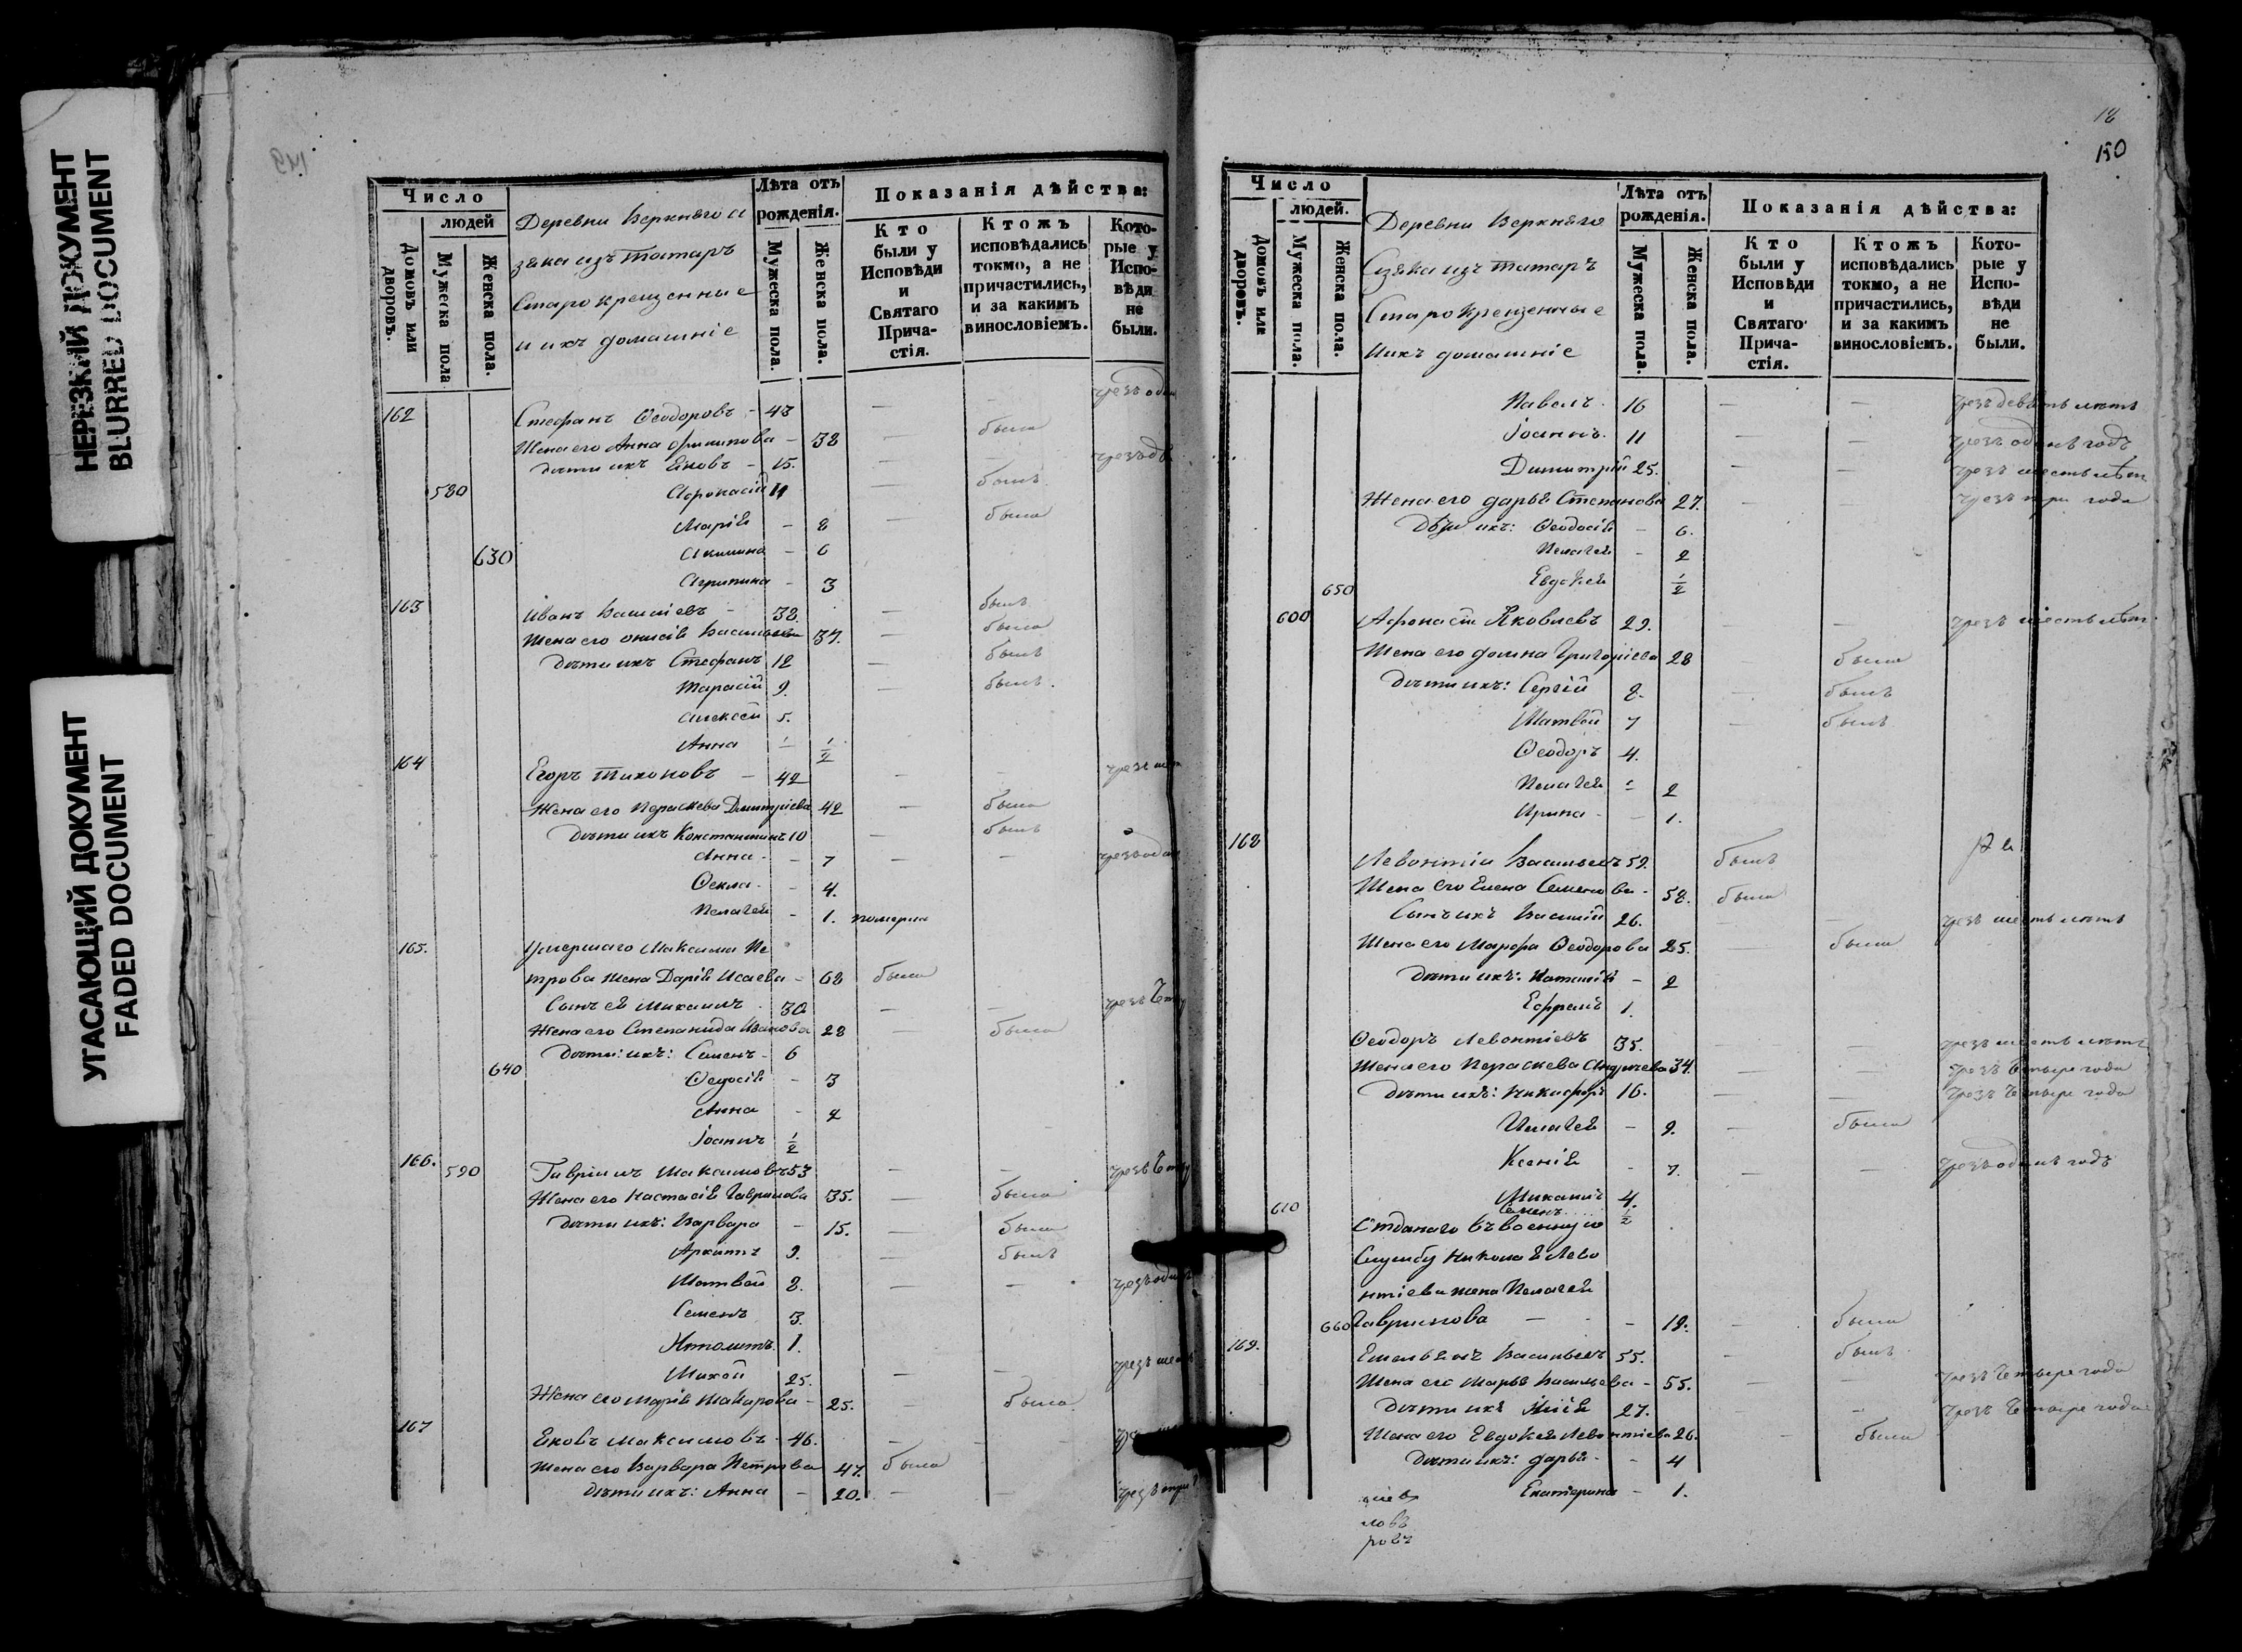 НЕРЕЗКИЙ ДОКУМЕНТ
BLURRED DOCUMENT
УГАСАЮЩИЙ ДОКУМЕНТ
FADED DOCUMENT
149
Число
людей
Домовъ или дворовъ.
Мужеска пола
Женска пола.
Деревни Верхняго
зяка изъ татаръ
Старокрещенные
и ихъ домашніе
Лѣта отъ рожденія.
Мужеска пола.
Женска пола.
Показанія дѣйства:
Кто были у Исповѣди и Святаго Причастія.
Ктожъ исповѣдались токмо, а не причастились, и за какимъ винословіемъ.
Которые у Исповѣди не были.
162 Стефанъ Ѳеодоровъ - 43 — — чрезъ
Жена его Анна Филипова - 38 — была
дѣти ихъ Яковъ - 15. — — чрезъ
580 Афонасій 14 — былъ
Марія - 8 — была
630 Акилина - 6
Агрипина - 3
163 Иванъ Василіевъ - 38. — былъ
Жена его Васильева 37. — была
дѣти ихъ Стефанъ 12 — былъ
Тарасій 9. — былъ.
Алексѣй 5.
Анна - 1/2
164 Егоръ Тихоновъ - 42 — — чрезъ
Жена его Параскева Дмитріева 42 — была
дѣти ихъ Константинъ 10 — былъ
Анна - - 7 — — чрезъ
Ѳекла - - 4.
Пелагея - 1. померла
165. Умершаго Максима Пе
трова жена Дарія Исаева - 68 была
Сынъ ея Михаилъ 30 — — чрезъ
Жена его Степанида Иванова 28 — была
640 дѣти ихъ: Семенъ - 6
Ѳедосія - 3
Анна - 2
Іоаннъ 1/2
166. 590 Гавріилъ Максимовъ 53 — — чрезъ
Жена его Настасія Гаврилова 35. — была
дѣти ихъ: Варвара - 15. — была
Архипъ 9. — былъ
Матвѣй 8. — — чрезъ
Семенъ 3.
Ипполитъ 1.
Михей 25. — — чрезъ
Жена его Марія Макарова - 25. — была
167 Яковъ Максимовъ - 46. — —
Жена его Варвара Петрова 47. была
дѣти ихъ: Анна - 20. — — чрезъ три
18
150
Число
людей.
Домовъ или дворовъ.
Мужеска пола.
Женска пола.
Деревни Верхняго
Сзяка изъ татаръ
Старокрещенные
и ихъ домашніе
Лѣта отъ рожденія.
Мужеска пола.
Женска пола.
Показанія дѣйства:
Кто были у Исповѣди и Святаго Причастія.
Ктожъ исповѣдались токмо, а не причастились, и за какимъ винословіемъ.
Которые у Исповѣди не были.
Павелъ 16 — — чрезъ девять лѣтъ
Іоаннъ 11 — — чрезъ одинъ годъ
Димитрій 25. — — чрезъ шесть лѣтъ
Жена его Дарья Степанова 27. — чрезъ три года
Дѣти ихъ: Ѳеодосія - 6.
Пелагея - 2
650 Евдокея 1/2
600 Афонасій Яковлевъ 29. — — чрезъ шесть лѣтъ
Жена его Домна Григоріева 28 — была
дѣти ихъ: Сергій 8. — былъ
Матвѣй 7 — былъ
Ѳеодоръ 4.
Пелагея - 2
Ирина - - 1.
168 Левонтій Васильевъ 59. былъ
Жена его Елена Семенова - 58. была
Сынъ ихъ Василій 26. — — чрезъ шесть лѣтъ
Жена его Марфа Ѳеодорова 25. — была
дѣти ихъ: Наталія - 2
Ефремъ 1.
Ѳеодоръ Левонтіевъ 35. — — чрезъ шесть лѣтъ
Жена его Параскева Андреева 34. — — чрезъ четыре года
дѣти ихъ: Никифоръ 16. — — чрезъ четыре года
Пелагея - 9. — была
Ксенія - 7. — — чрезъ одинъ годъ
Михаилъ 4.
610 Семенъ 1/2
Отданаго въ военную
Службу Николая Лево
нтіева жена Пелагея
660 Гаврилова - - 19. — была
169. Емельянъ Васильевъ 55. — былъ
Жена его Марья Васильева - 55. — — чрезъ четыре года
дѣти ихъ Илія 27. — чрезъ четыре года
Жена его Евдокея Левонтіева 26. — была
дѣти ихъ: Дарья - - 4
Екатерина - 1.
ловъ
ровъ